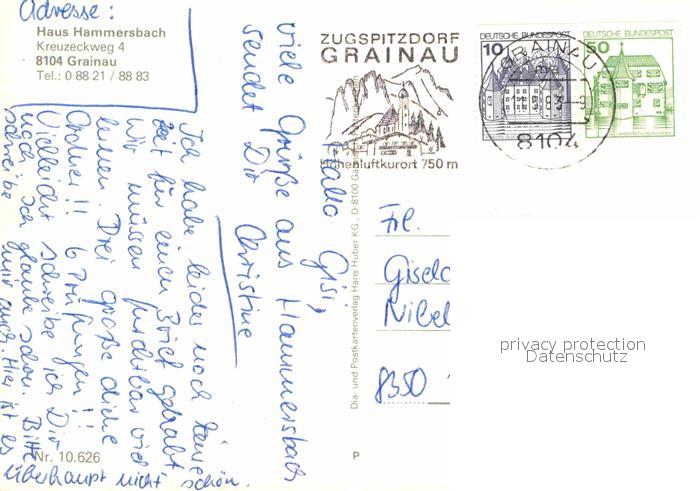 Adresse:
Haus Hammersbach
Kreuzeckweg 4
8104 Grainau
Tel.: 0 88 21 / 88 83
ZUGSPITZDORF
GRAINAU
Höhenluftkurort 750 m
DEUTSCHE BUNDESPOST
10
DEUTSCHE BUNDESPOST
50
GRAINAU
8104
Hallo Gisi,
viele Grüße aus Hammersbach
sendet Dir
Christine
Ich habe leider noch keine
Zeit für einen Brief gehabt.
Wir müssen furchtbar viel
lernen. Drei große dicke
Ordner!! 6 Prüfungen!!
Vielleicht schreibe ich Dir
noch. Ich glaube schon. Bitte
schreibe mir auch. Hier ist es
überhaupt nicht schön.
Dia- und Postkartenverlag Hans Huber KG., D-8100
Frl.
Gisela
Nibel
8350
privacy protection
Datenschutz
Nr. 10.626
P